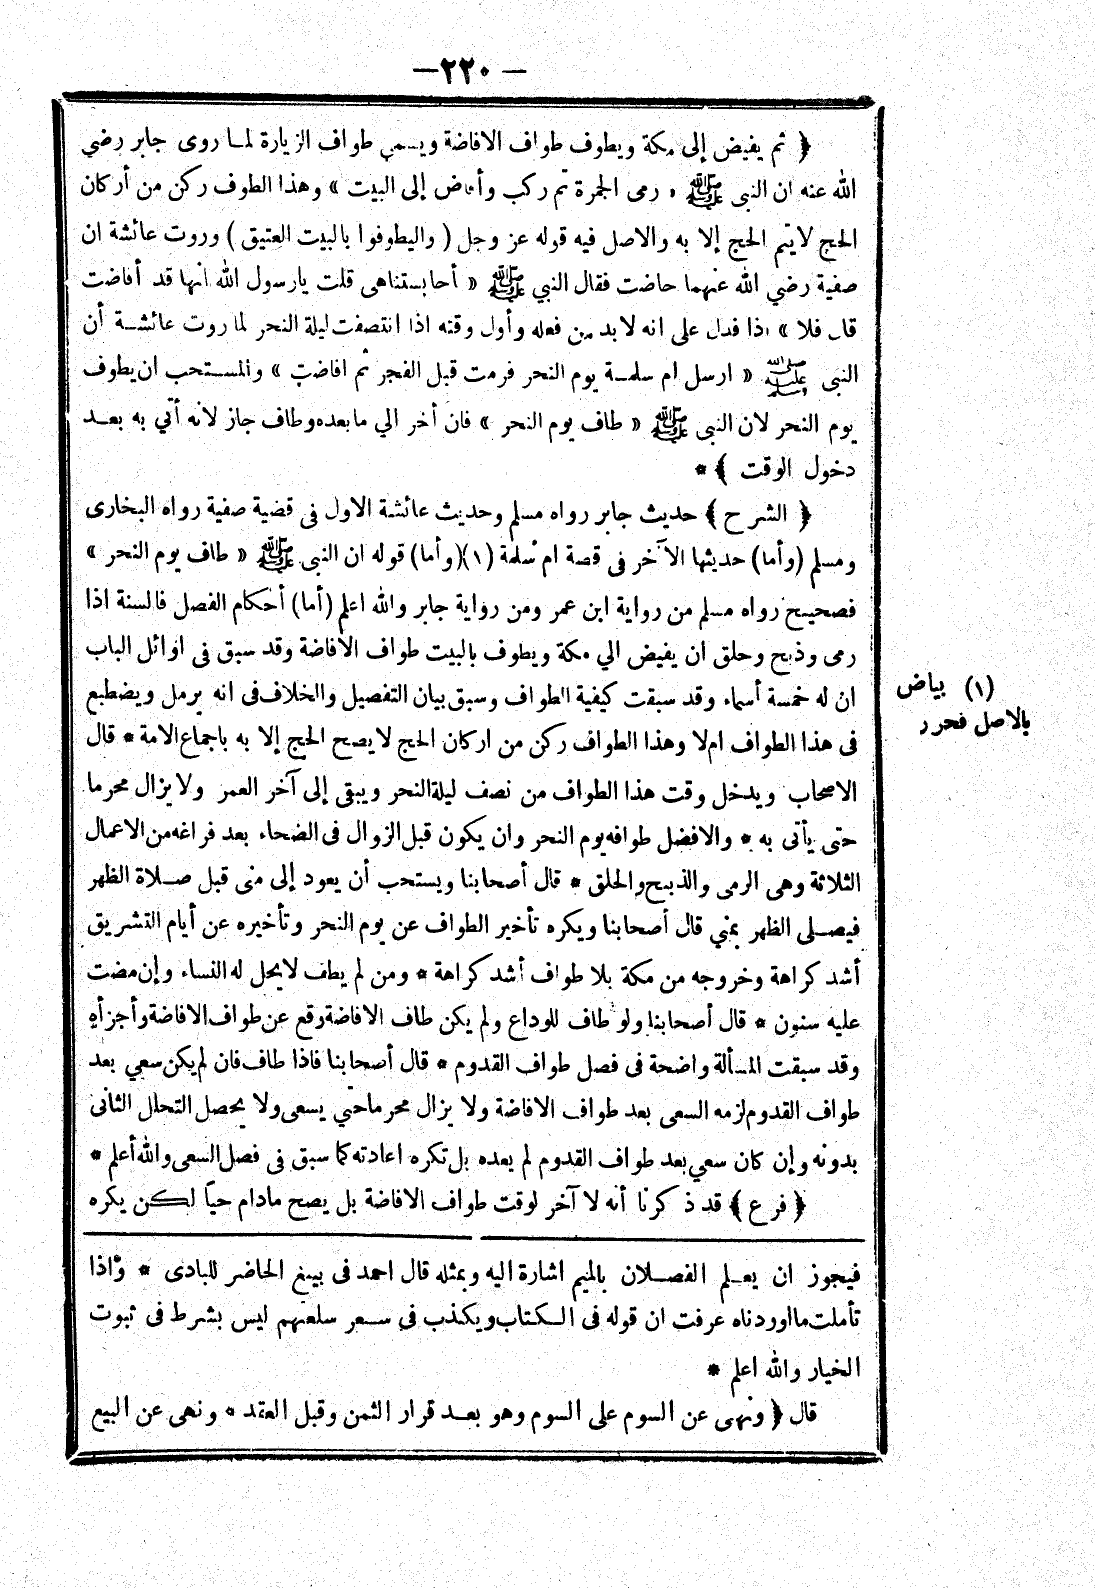 — ٢٢٠ —
﴿ ثم يفيض إلى مكة ويطوف طواف الافاضة ويسمى طواف الزيارة لما روى جابر رضي
الله عنه ان النبى ﷺ « رمى الجمرة ثم ركب وأفاض إلى البيت » وهذا الطوف ركن من أركان
الحج لا يتم الحج إلا به والاصل فيه قوله عز وجل ( واليطوفوا بالبيت العتيق ) وروت عائشة ان
صفية رضي الله عنهما حاضت فقال النبي ﷺ « أحابستناهى قلت يارسول الله انها قد أفاضت
قال فلا » اذا فدل على انه لا بد من فعله وأول وقته اذا انتصفت ليلة النحر لما روت عائشة أن
النبى ﷺ « ارسل ام سلمة يوم النحر فرمت قبل الفجر ثم افاضت » والمستحب ان يطوف
يوم النحر لان النبى ﷺ « طاف يوم النحر » فان أخر الي ما بعده وطاف جاز لانه أتي به بعد
دخول الوقت ﴾ *
﴿ الشرح ﴾ حديث جابر رواه مسلم وحديث عائشة الاول فى قضية صفية رواه البخارى
ومسلم (وأما) حديثها الآخر فى قصة ام سلمة (١)(وأما) قوله ان النبى ﷺ « طاف يوم النحر »
فصحيح رواه مسلم من رواية ابن عمر ومن رواية جابر والله اعلم (أما) أحكام الفصل فالسنة اذا
رمى وذبح وحلق ان يفيض الي مكة ويطوف بالبيت طواف الافاضة وقد سبق فى اوائل الباب
ان له خمسة أسماء وقد سبقت كيفية الطواف وسبق بيان التفصيل والخلاف فى انه يرمل ويضطبع
فى هذا الطواف ام لا وهذا الطواف ركن من اركان الحج لا يصح الحج إلا به باجماع الامة * قال
الاصحاب ويدخل وقت هذا الطواف من نصف ليلة النحر ويبقى إلى آخر العمر ولا يزال محرما
حتى يأتى به * والافضل طوافه يوم النحر وان يكون قبل الزوال فى الضحاء بعد فراغه من الاعمال
الثلاثة وهى الرمى والذبح والحلق * قال أصحابنا ويستحب أن يعود إلى منى قبل صلاة الظهر
فيصلى الظهر بمني قال أصحابنا ويكره تأخير الطواف عن يوم النحر وتأخيره عن أيام التشريق
أشد كراهة وخروجه من مكة بلا طواف أشد كراهة * ومن لم يطف لا يحل له النساء وإن مضت
عليه سنون * قال أصحابنا ولو طاف للوداع ولم يكن طاف الافاضة وقع عن طواف الافاضة وأجزأه
وقد سبقت المسألة واضحة فى فصل طواف القدوم * قال أصحابنا فاذا طاف فان لم يكن سعي بعد
طواف القدوم لزمه السعى بعد طواف الافاضة ولا يزال محرما حتي يسعى ولا يحصل التحلل الثانى
بدونه وإن كان سعي بعد طواف القدوم لم يعده بل تكره اعادته كما سبق فى فصل السعى والله أعلم *
﴿ فرع ﴾ قد ذكرنا أنه لا آخر لوقت طواف الافاضة بل يصح مادام حيا لكن يكره
(١) بياض
بالاصل فحرر
فيجوز ان يعلم الفصلان بالميم اشارة اليه وبمثله قال احمد فى بيع الحاضر للبادى * واذا
تأملت ما اوردناه عرفت ان قوله فى الكتاب ويكذب في سعر سلعتهم ليس بشرط فى ثبوت
الخيار والله اعلم *
قال ﴿ ونهى عن السوم على السوم وهو بعد قرار الثمن وقبل العقد * ونهى عن البيع